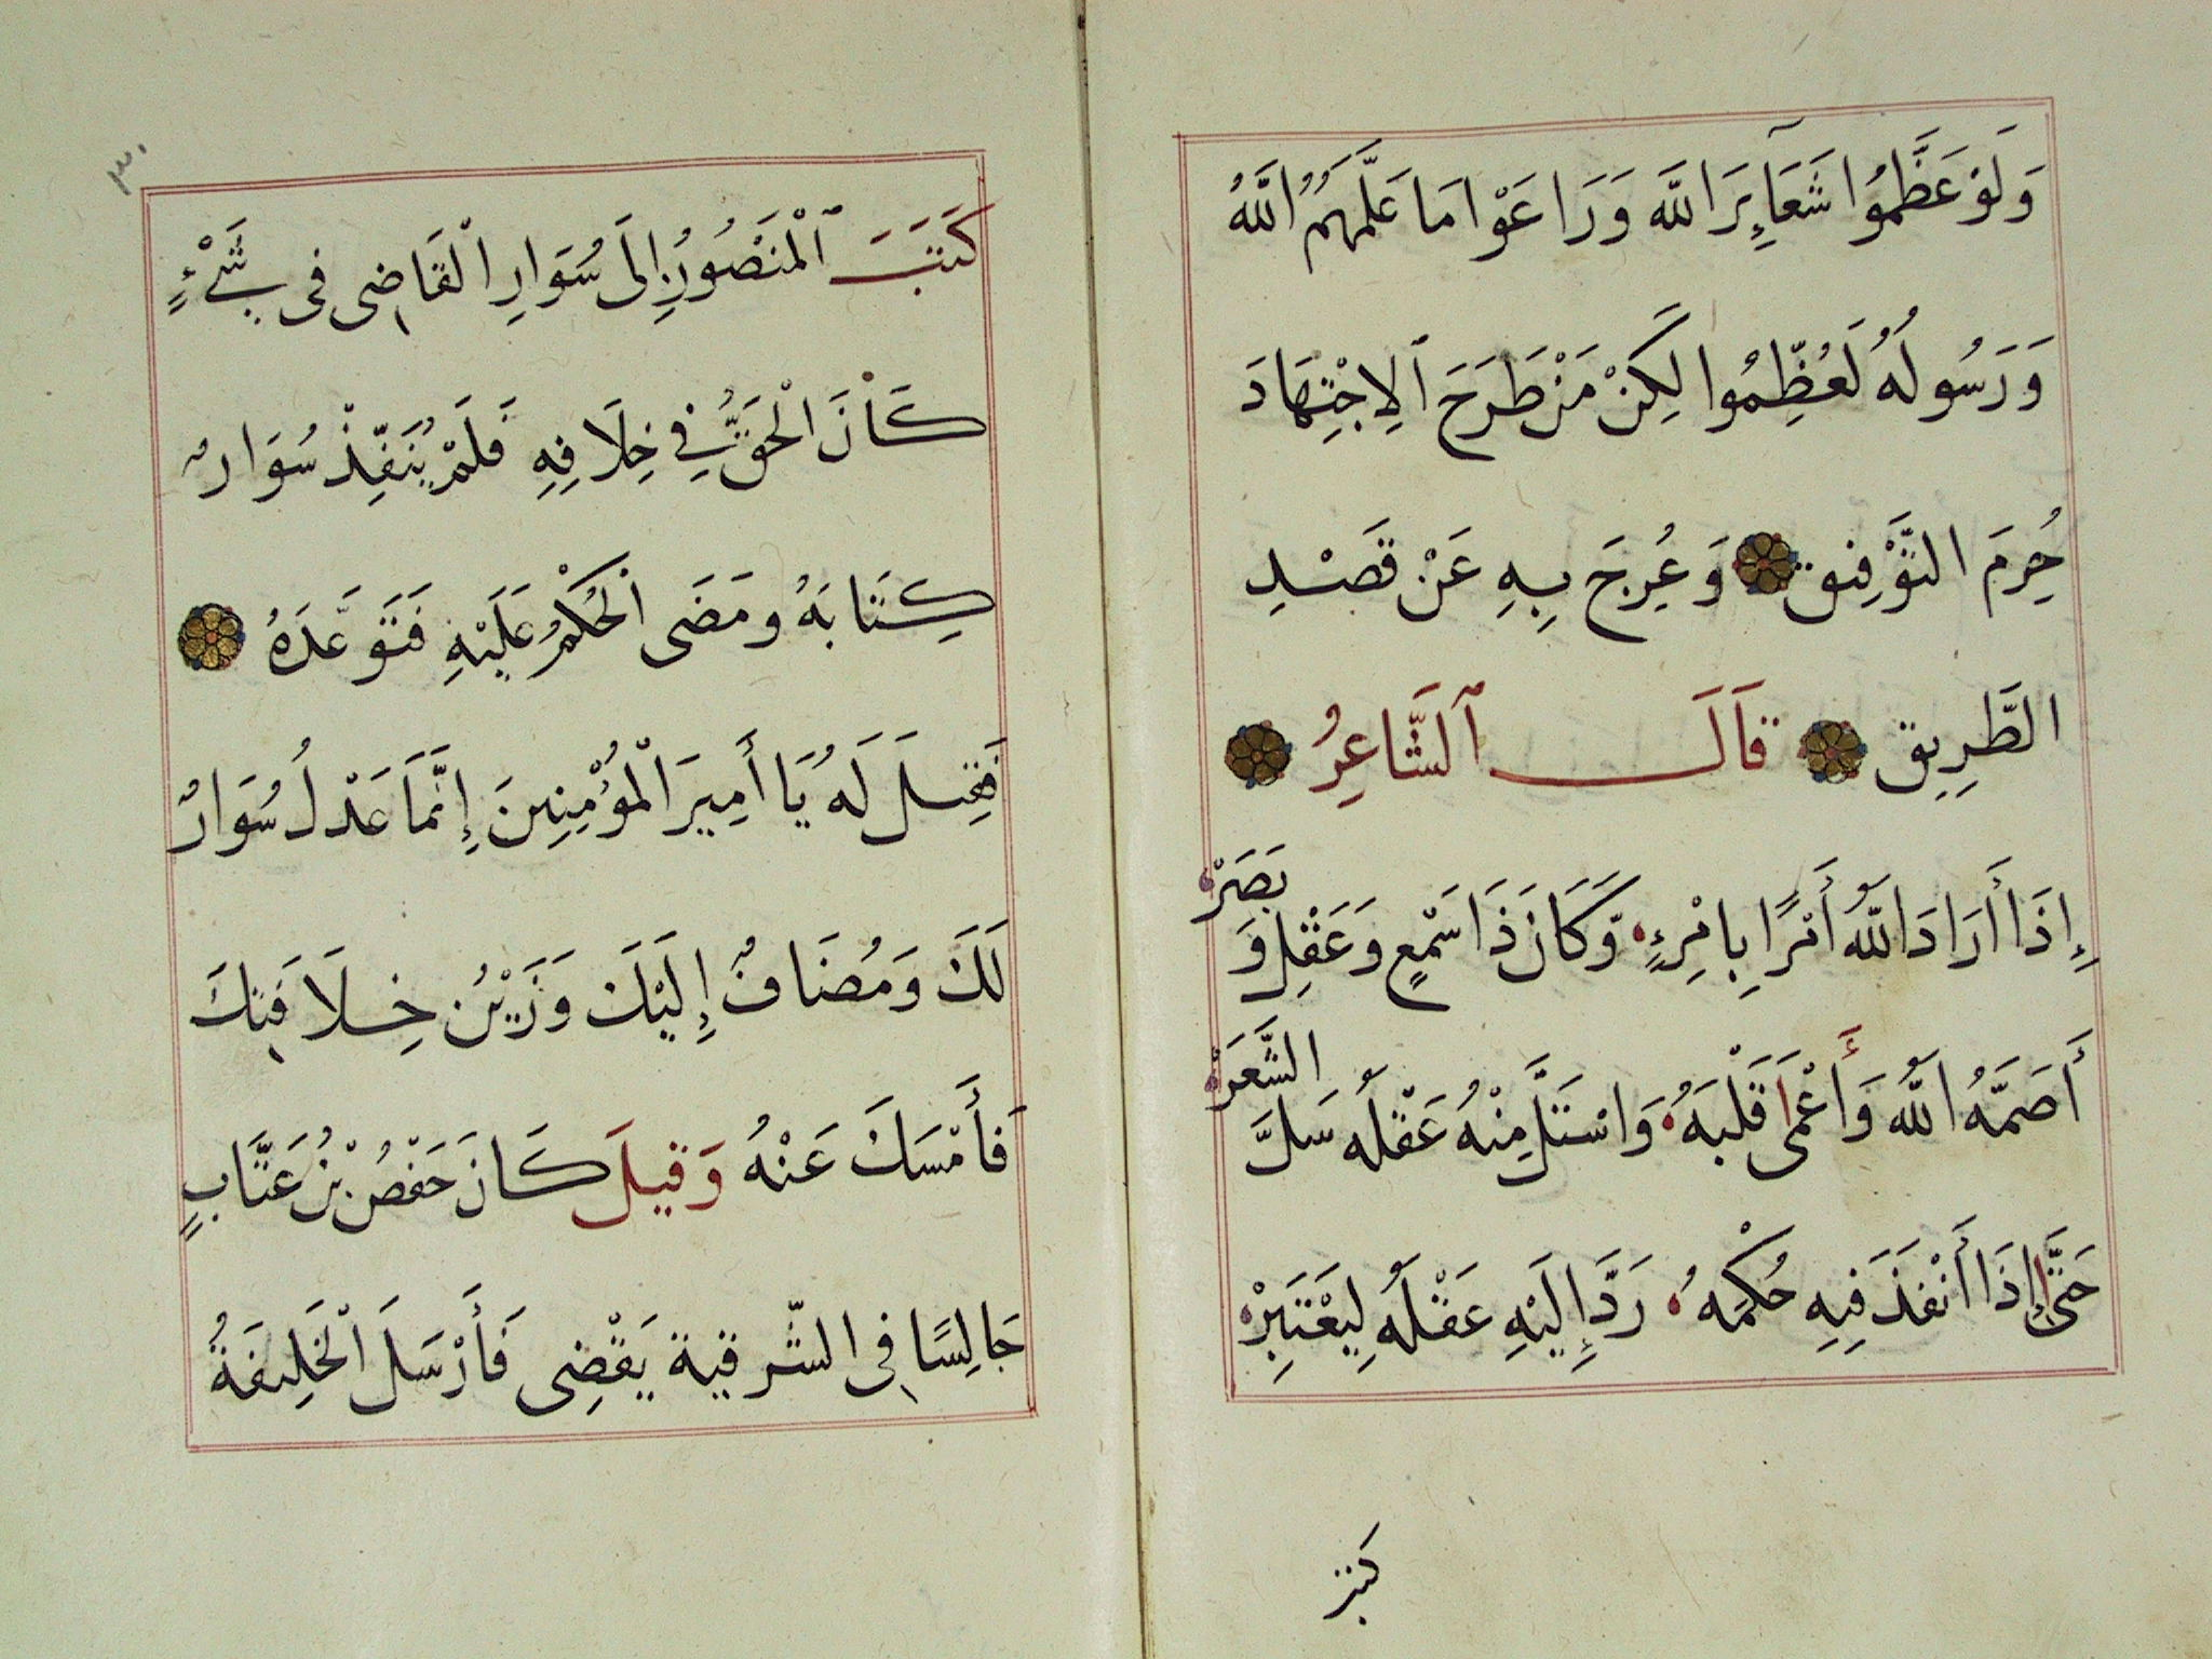 وَلَوْ عَظَّمُوا شَعَآئِرَ اللَّه وَرَاعَوْا مَا عَلَّمَهُمُ اللَّهُ
وَرَسُولُهُ لَعُظِّمُوا لَكِنْ مَنْ طَرَحَ ٱلِاجْتِهَادَ
حُرِمَ التَّوْفِيق وَعُرِجَ بِهِ عَنْ قَصْدِ
الطَّرِيق قَالَ ٱلشَّاعِرُ
إِذَا أَرَادَ اللَّهُ أَمْرًا بِامْرِءٍ وَكَانَ ذَا سَمْعٍ وَعَقْلٍ وَ بَصَرْ
أَصَمَّهُ اللَّهُ وَأَعْمَى قَلْبَهُ وَاسْتَلَّ مِنْهُ عَقْلَهُ سَلَّ الشَّعَرْ
حَتَّى إِذَا أَنْفَذَ فِيهِ حُكْمَهُ رَدَّ إِلَيْهِ عَقْلَهُ لِيَعْتَبِرْ
٣٠
كَتَبَ ٱلْمَنْصُورُ إِلَى سُوَارِ الْقَاضِى فى شَىْءٍ
كَانَ الْحَقُّ فِي خِلَافِهِ فَلَمْ يُنَفِّذْ سُوَارٌ
كِتَابَهُ ومَضَى الْحُكْمُ عَلَيْهِ فَتَوَعَّدَهُ
فَقِيلَ لَهُ يَا أَمِيرَ الْمُؤْمِنِينَ إِنَّمَا عَدْلُ سُوَارٌ
لَكَ وَمُضَافٌ إِلَيْكَ وَزَيْنُ خِلَافَتِكَ
فَأَمْسَكَ عَنْهُ وَقِيلَ كَانَ حَفْصُ بْنُ عَتَّابٍ
جَالِسًا فِى الشَّرقية يَقْضِى فَأَرْسَلَ الْخَلِيفَةُ